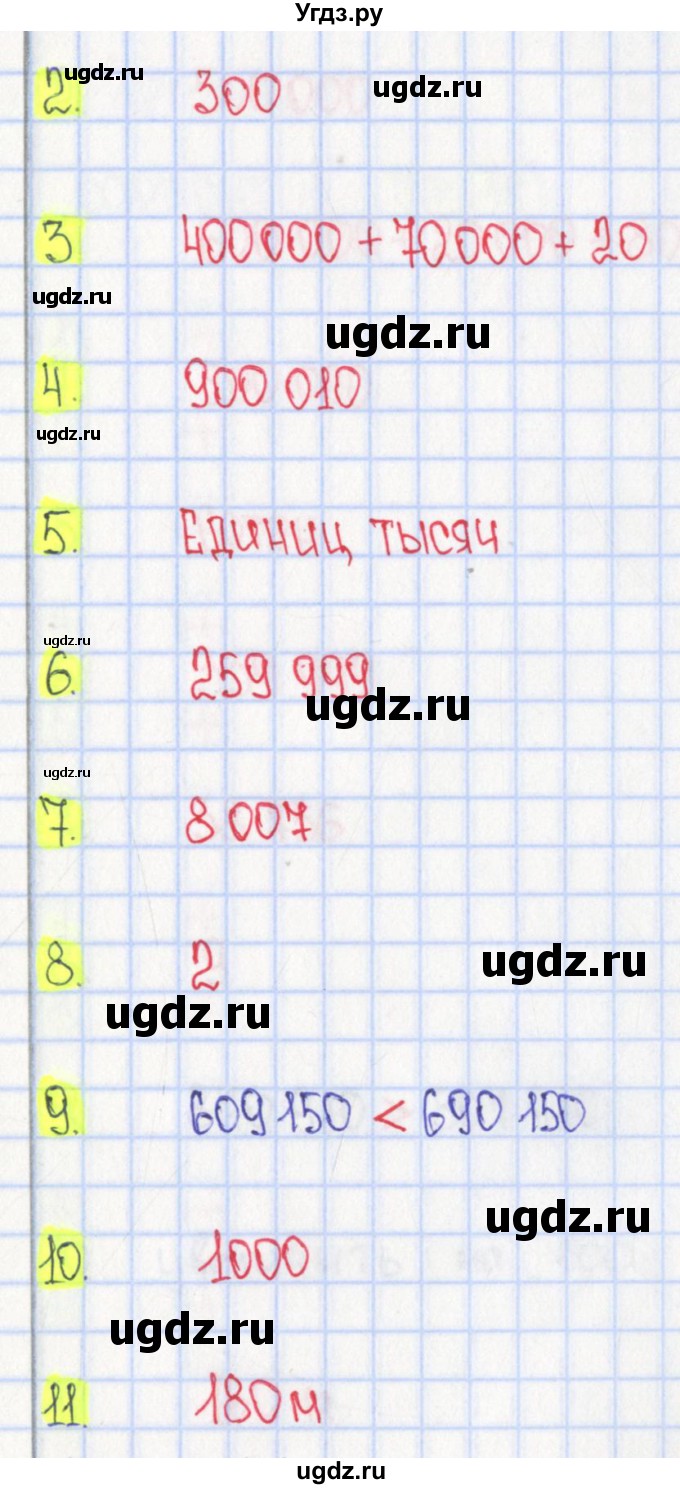 Угдз.ру
ugdz.ru
2. 300 ugdz.ru
3 400 000 + 70 000 + 20
ugdz.ru
ugdz.ru
4. 900 010
ugdz.ru
5. Единиц тысяч
ugdz.ru
6. 259 999
ugdz.ru
ugdz.ru
7. 8 007
8. 2 ugdz.ru
ugdz.ru
9. 609 150 < 690 150
ugdz.ru
10. 1000
ugdz.ru
11. 180 м
ugdz.ru